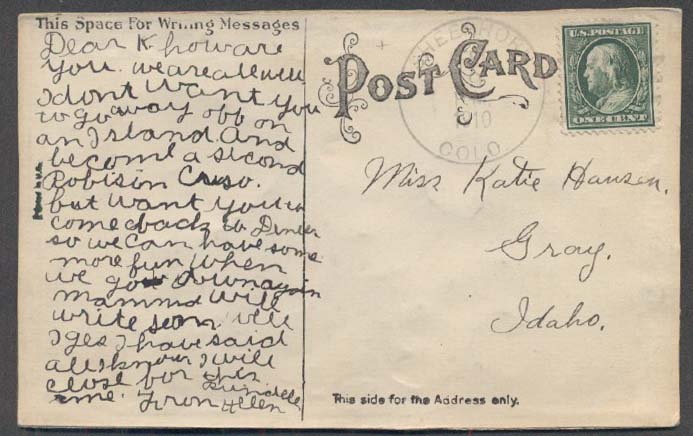 This Space For Writing Messages
Dear K how are
you. we are all well
I dont want you
to go away off on
an Island and
become a second
Robison Cruso.
but want you to
come back to Denver
so we can have some
more fun when
we go down again
mamma will
write soon. well
I ges I have said
all I know I will
close for this
time. from Helen
Printed in U.S.A.
POST CARD
1910
COLO.
U.S. POSTAGE
ONE CENT
Miss Katie Hansen,
Gray,
Idaho.
This side for the Address only.